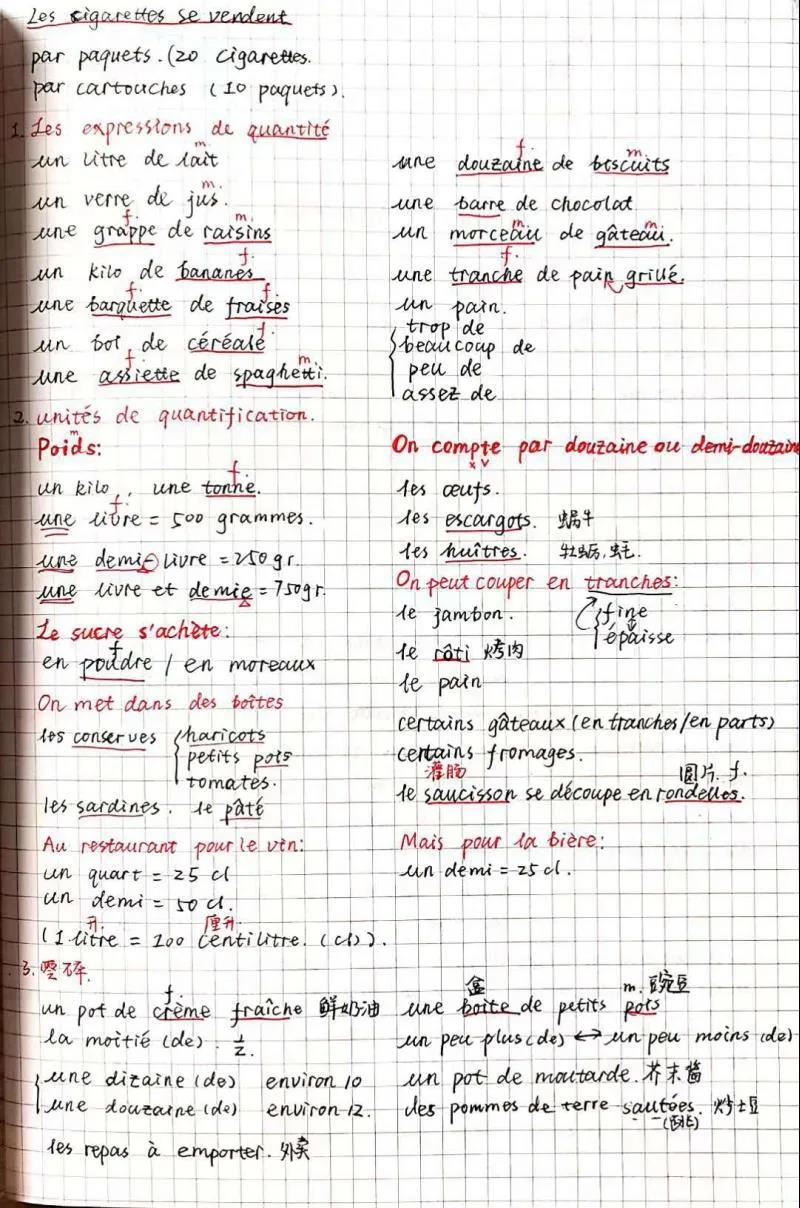 Les cigarettes se vendent
par paquets. (20 cigarettes.
par cartouches (10 paquets).
1. Les expressions de quantité
m
un litre de lait
m
un verre de jus.
f. m.
une grappe de raisins
f.
un kilo de bananes
f. f.
une barquette de fraises
f.
un bol de céréale
f. m.
une assiette de spaghetti.
f. m
une douzaine de biscuits
une barre de chocolat
m m
un morceau de gâteau.
f.
une tranche de pain grillé.
un pain.
trop de
beaucoup de
peu de
assez de
2. unités de quantification.
m
Poids:
f.
un kilo, une tonne.
f
une livre = 500 grammes.
une demi-livre = 250 gr.
une livre et demie = 750 gr.
Le sucre s'achète:
f
en poudre / en moreaux
On met dans des boîtes
les conserves haricots
petits pois
tomates.
les sardines. le pâté
Au restaurant pour le vin:
un quart = 25 cl
un demi = 50 cl.
升 厘升
(1 litre = 100 centilitre. (cl)).
On compte par douzaine ou demi-douzain
x v
les œufs.
les escargots. 蜗牛
les huîtres. 牡蛎, 蚝.
On peut couper en tranches:
le jambon. fine
épaisse
le rôti 烤肉
le pain
certains gâteaux (en tranches/en parts)
certains fromages.
灌肠 圆片. f.
le saucisson se découpe en rondelles.
Mais pour la bière:
un demi = 25 cl.
3. 零碎.
f.
un pot de crème fraîche 鲜奶油
la moitié (de). 1/2.
une dizaine (de) environ 10
une douzaine (de) environ 12.
les repas à emporter. 外卖
盒 m. 豌豆
une boîte de petits pois
un peu plus (de) ↔ un peu moins (de)
un pot de moutarde. 芥末酱
des pommes de terre sautées.